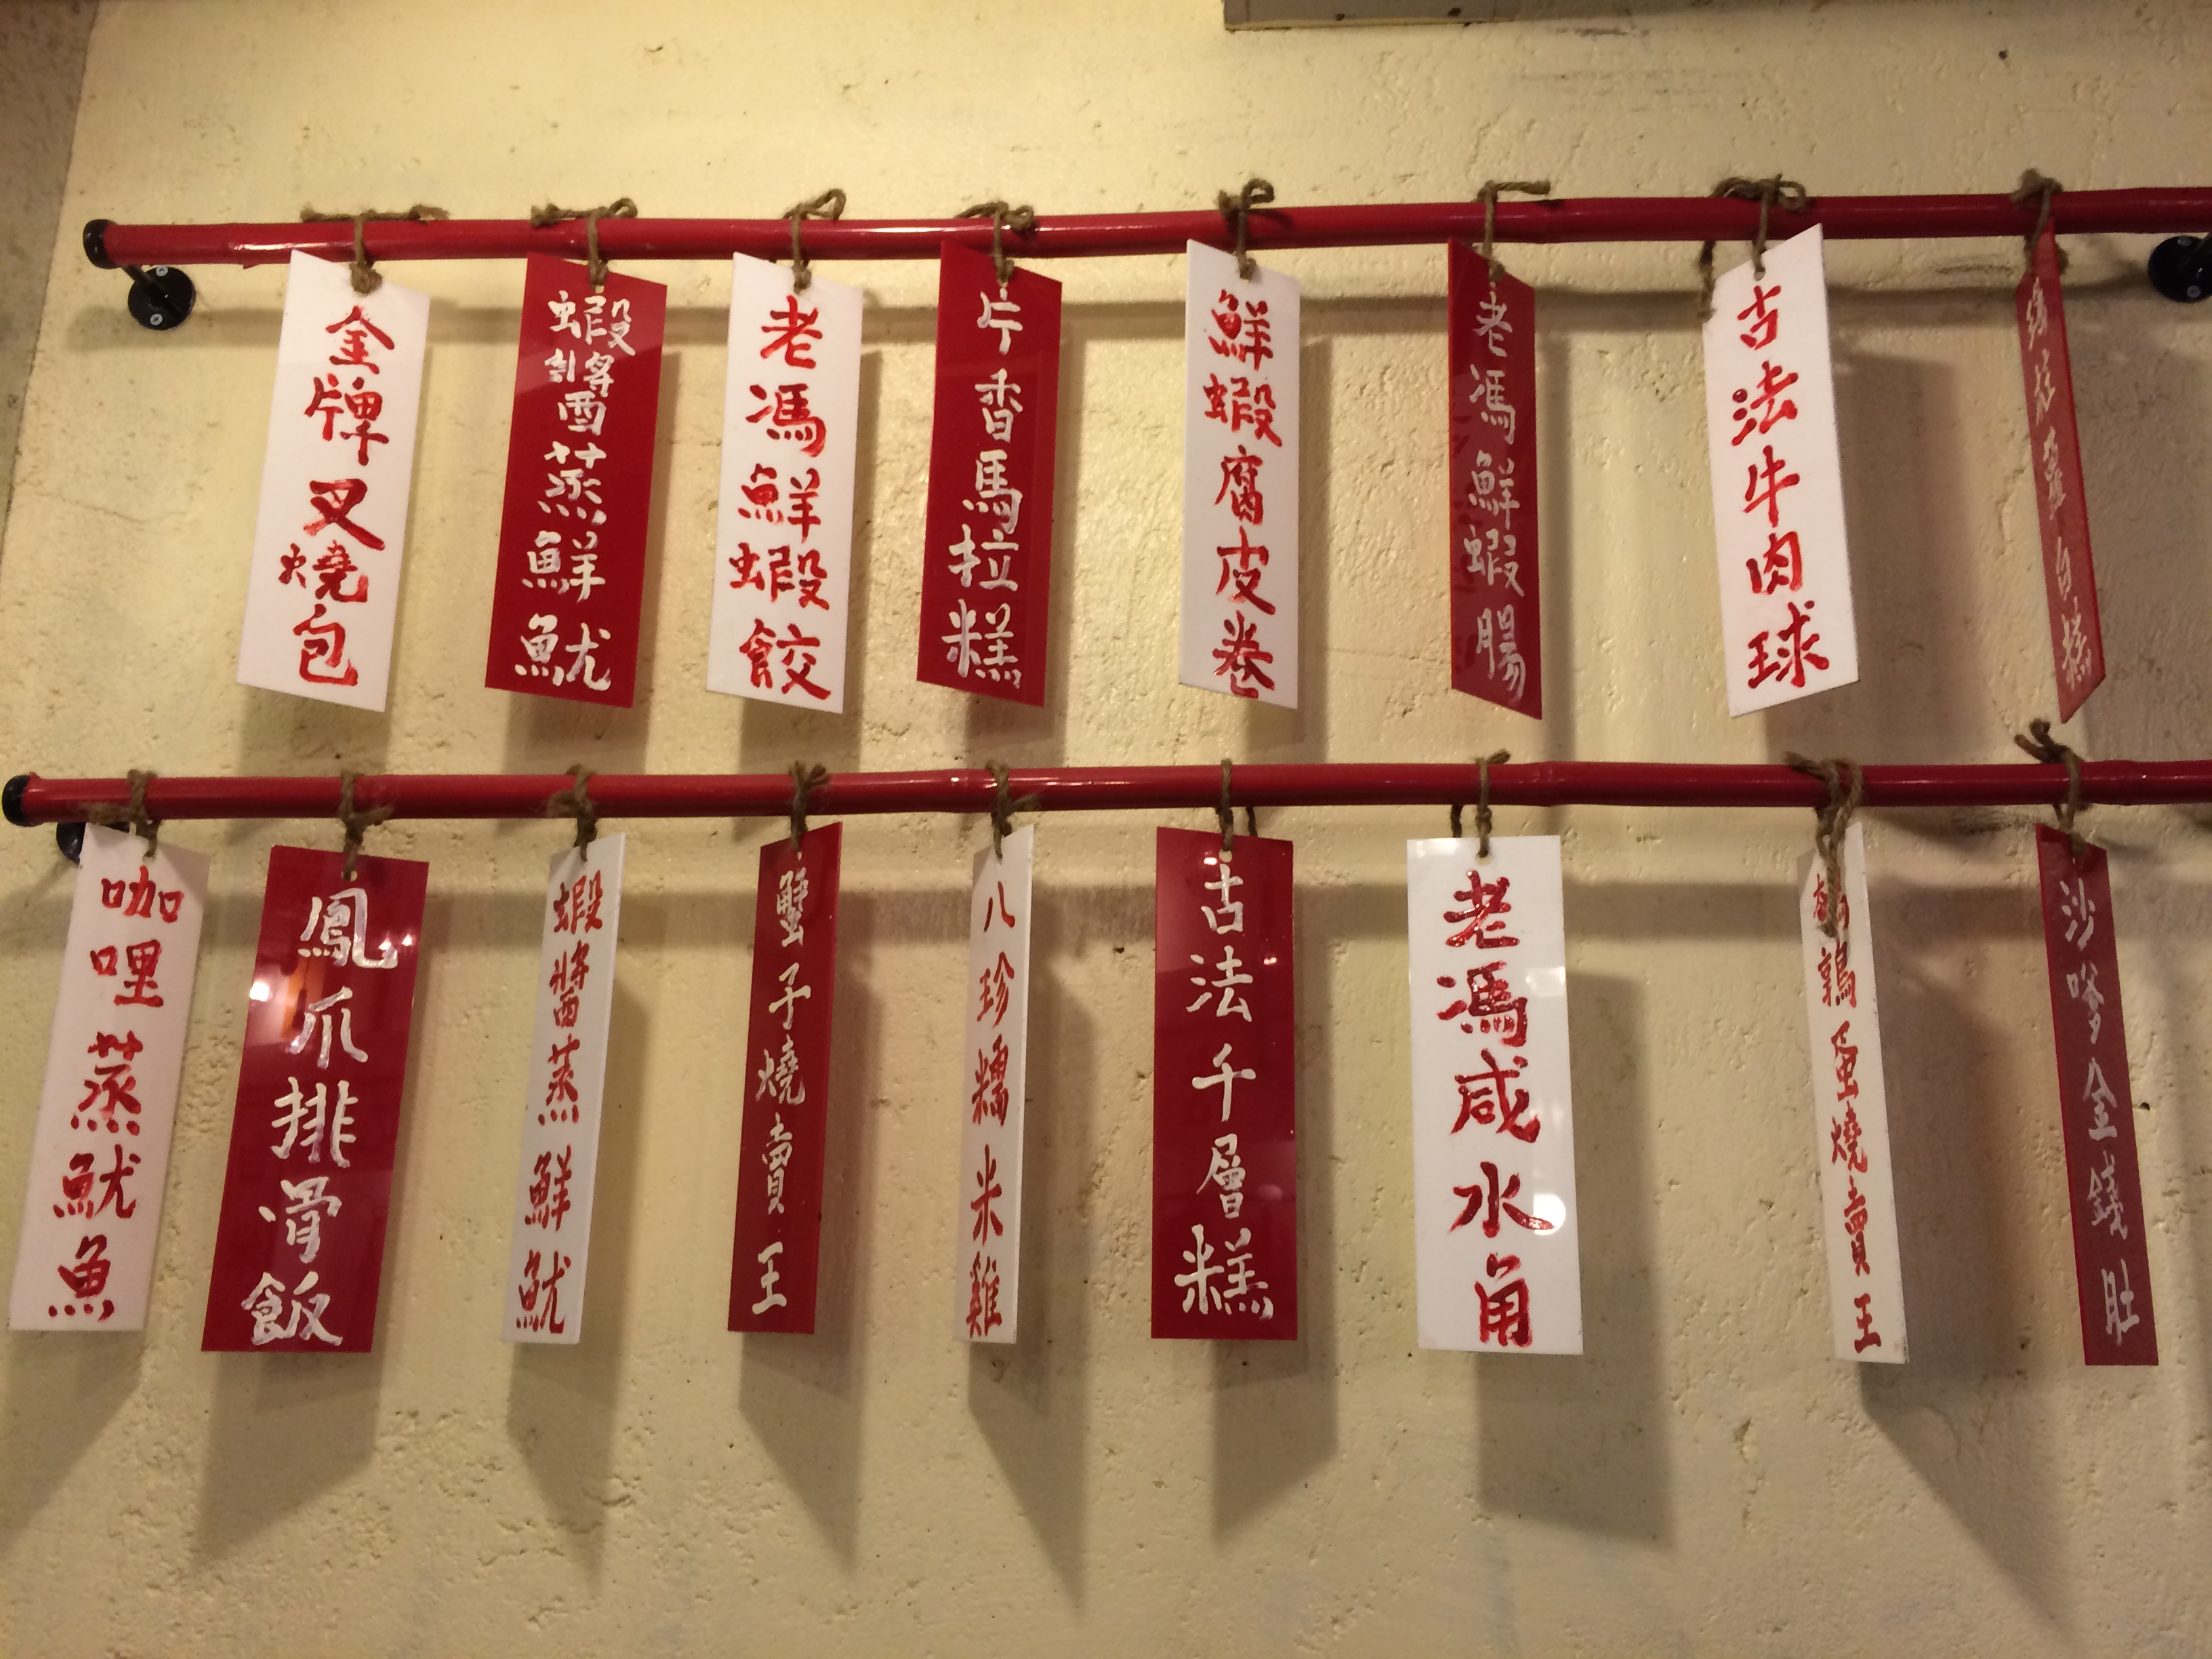 金牌叉燒包
蝦醬蒸鮮魷
老馮鮮蝦餃
片香馬拉糕
鮮蝦腐皮卷
老馮鮮蝦腸
古法牛肉球
瑤柱蘿白糕
咖哩蒸魷魚
鳳爪排骨飯
蝦醬蒸鮮魷
蟹子燒賣王
八珍糯米雞
古法千層糕
老馮咸水角
鵪鶉蛋燒賣王
沙嗲金錢肚